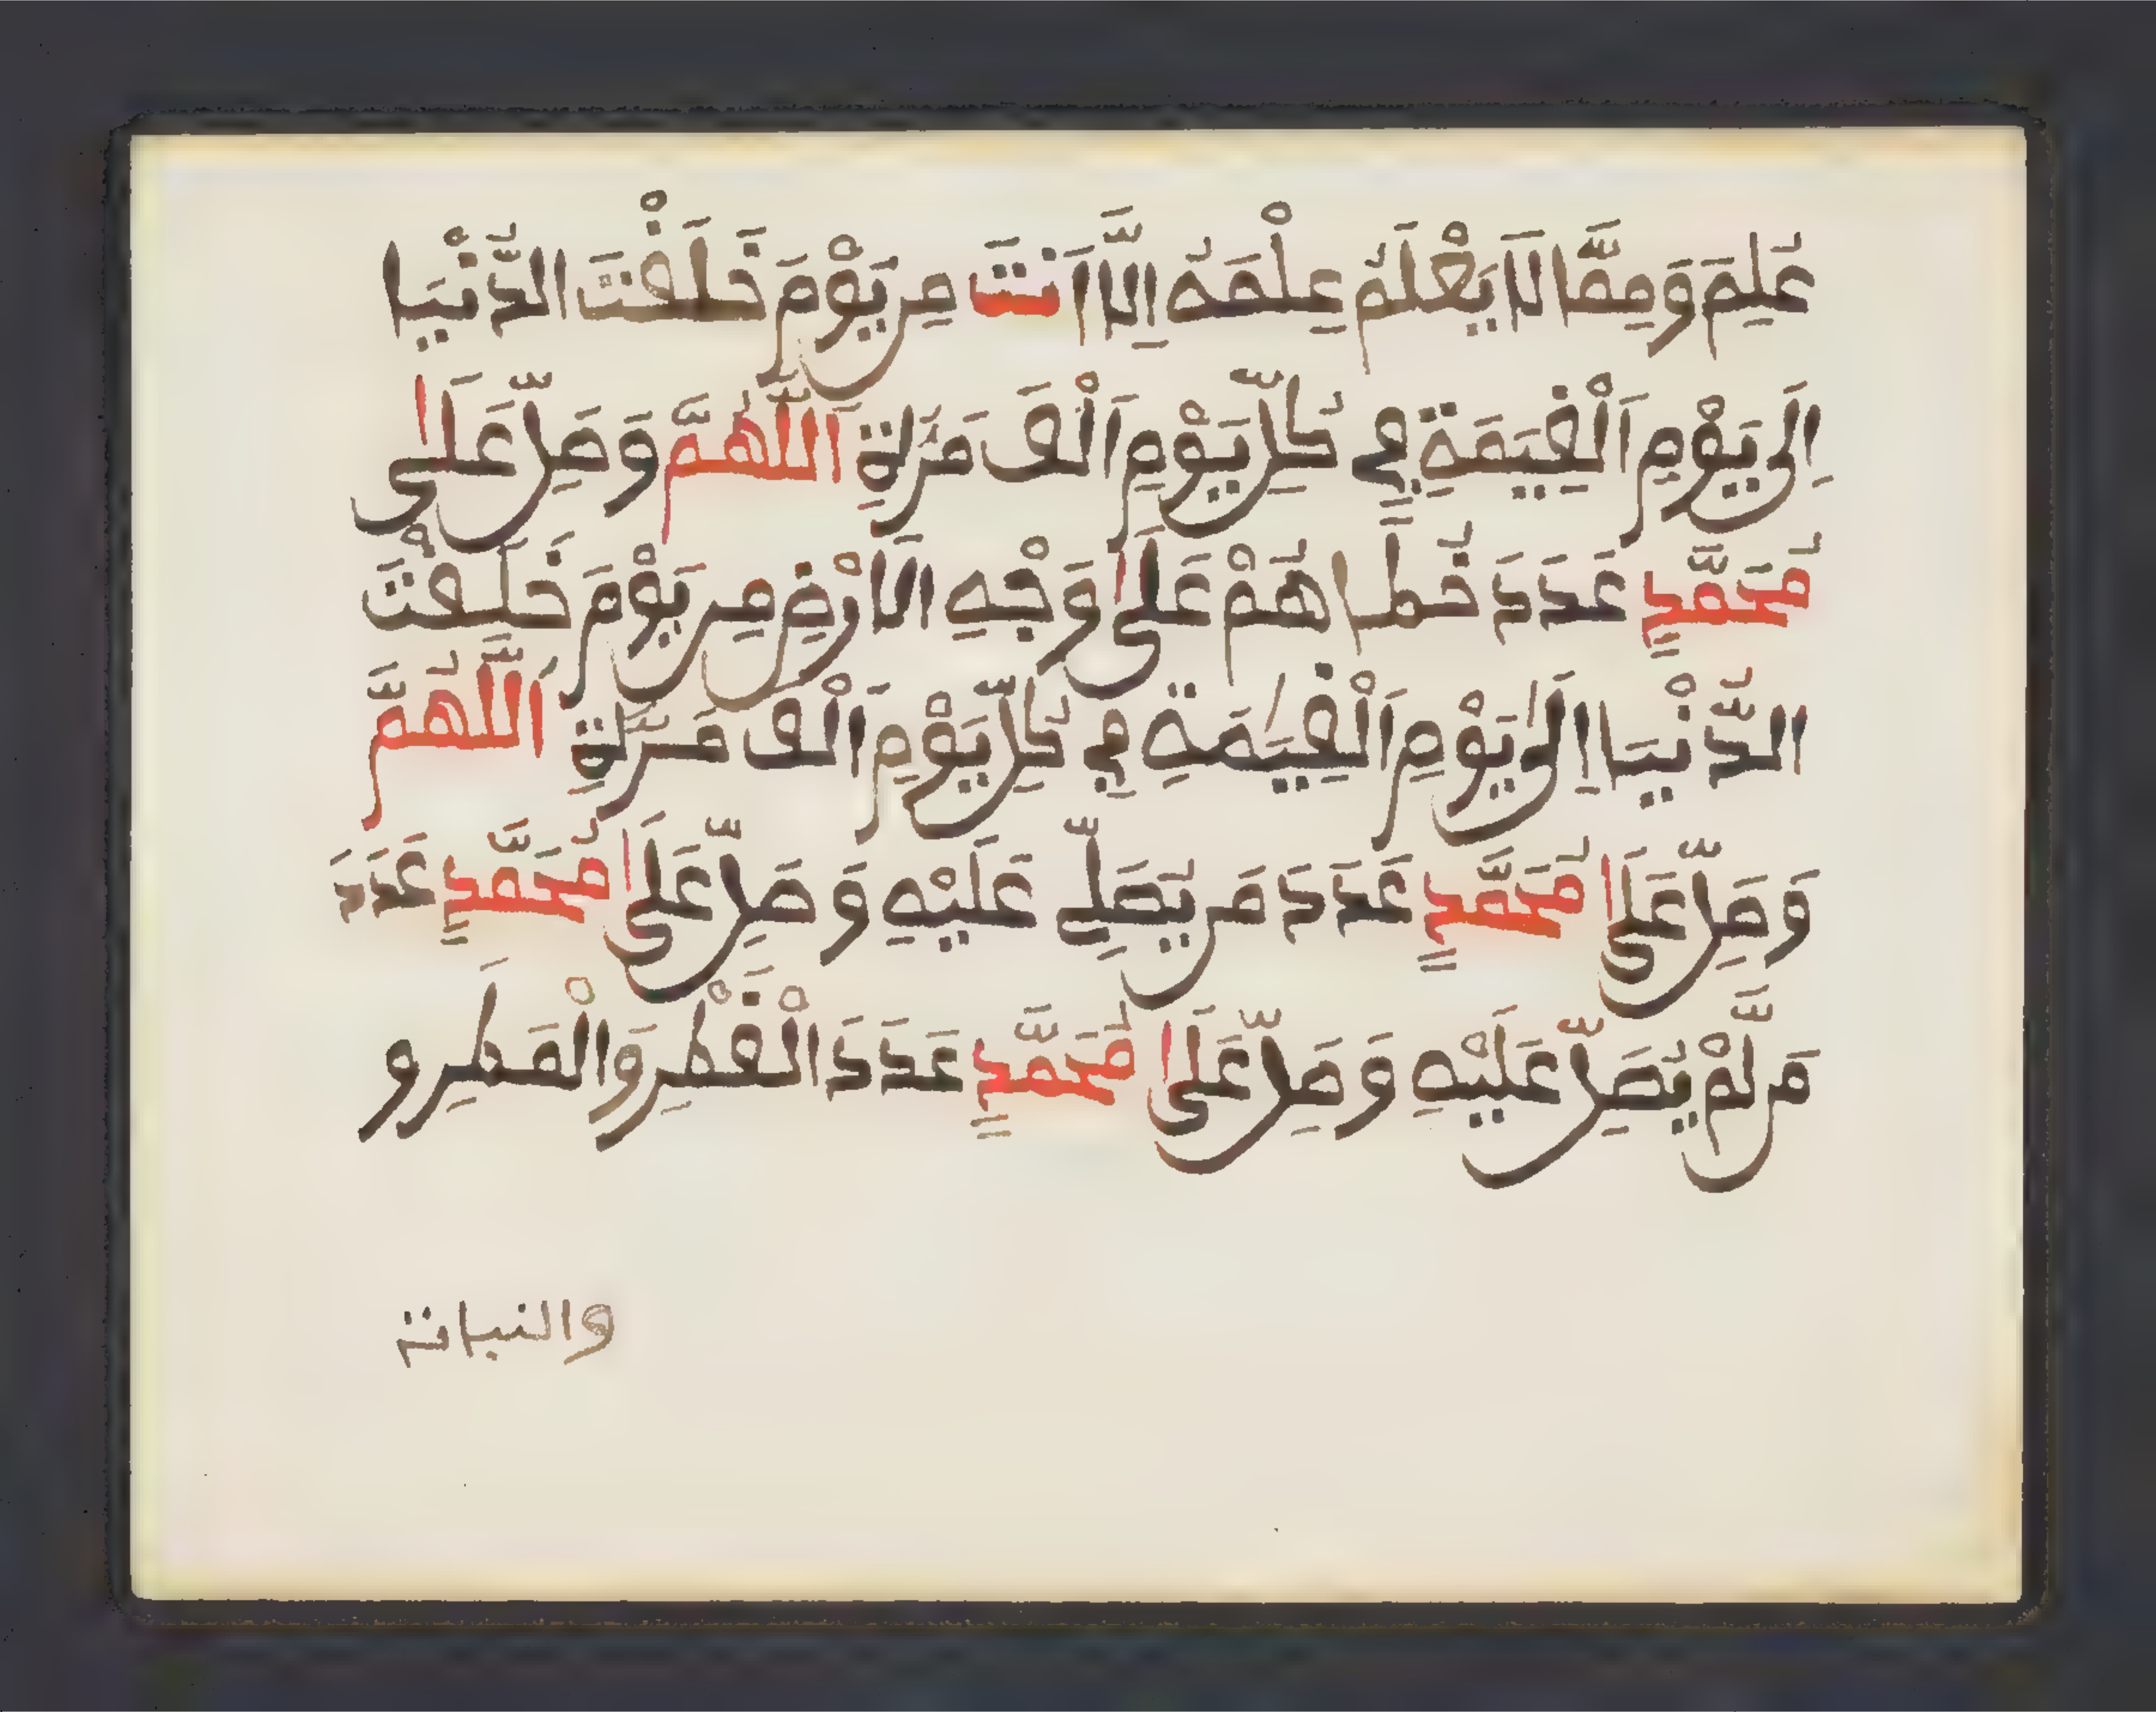 عُلِمَ وَمِمَّا لَا يَعْلَمُ عِلْمَهُ إِلَّا أَنتَ مِن يَوْمَ خَلَقْتَ الدُّنْيَا
إِلَى يَوْمِ اَلْقِيَمَةِ فِي كُلِّ يَوْمٍ اَلْفَ مَرَّةٍ اَللَّهُمَّ وَصَلِّ عَلَى
مُحَمَّدٍ عَدَدَ خُطَاهُمْ عَلَى وَجْهِ الَارْضِ مِن يَوْمَ خَلَقْتَ
الدُّنْيَا إِلَى يَوْمِ اَلْقِيَمَةِ فِي كُلِّ يَوْمٍ اَلْفَ مَرَّةٍ اَللَّهُمَّ
وَصَلِّ عَلَى مُحَمَّدٍ عَدَدَ مَن يُصَلِّي عَلَيْهِ وَصَلِّ عَلَى مُحَمَّدٍ عَدَدَ
مَن لَّمْ يُصَلِّ عَلَيْهِ وَصَلِّ عَلَى مُحَمَّدٍ عَدَدَ الْقَطْرِ وَالْمَطَرِ و
والنبات